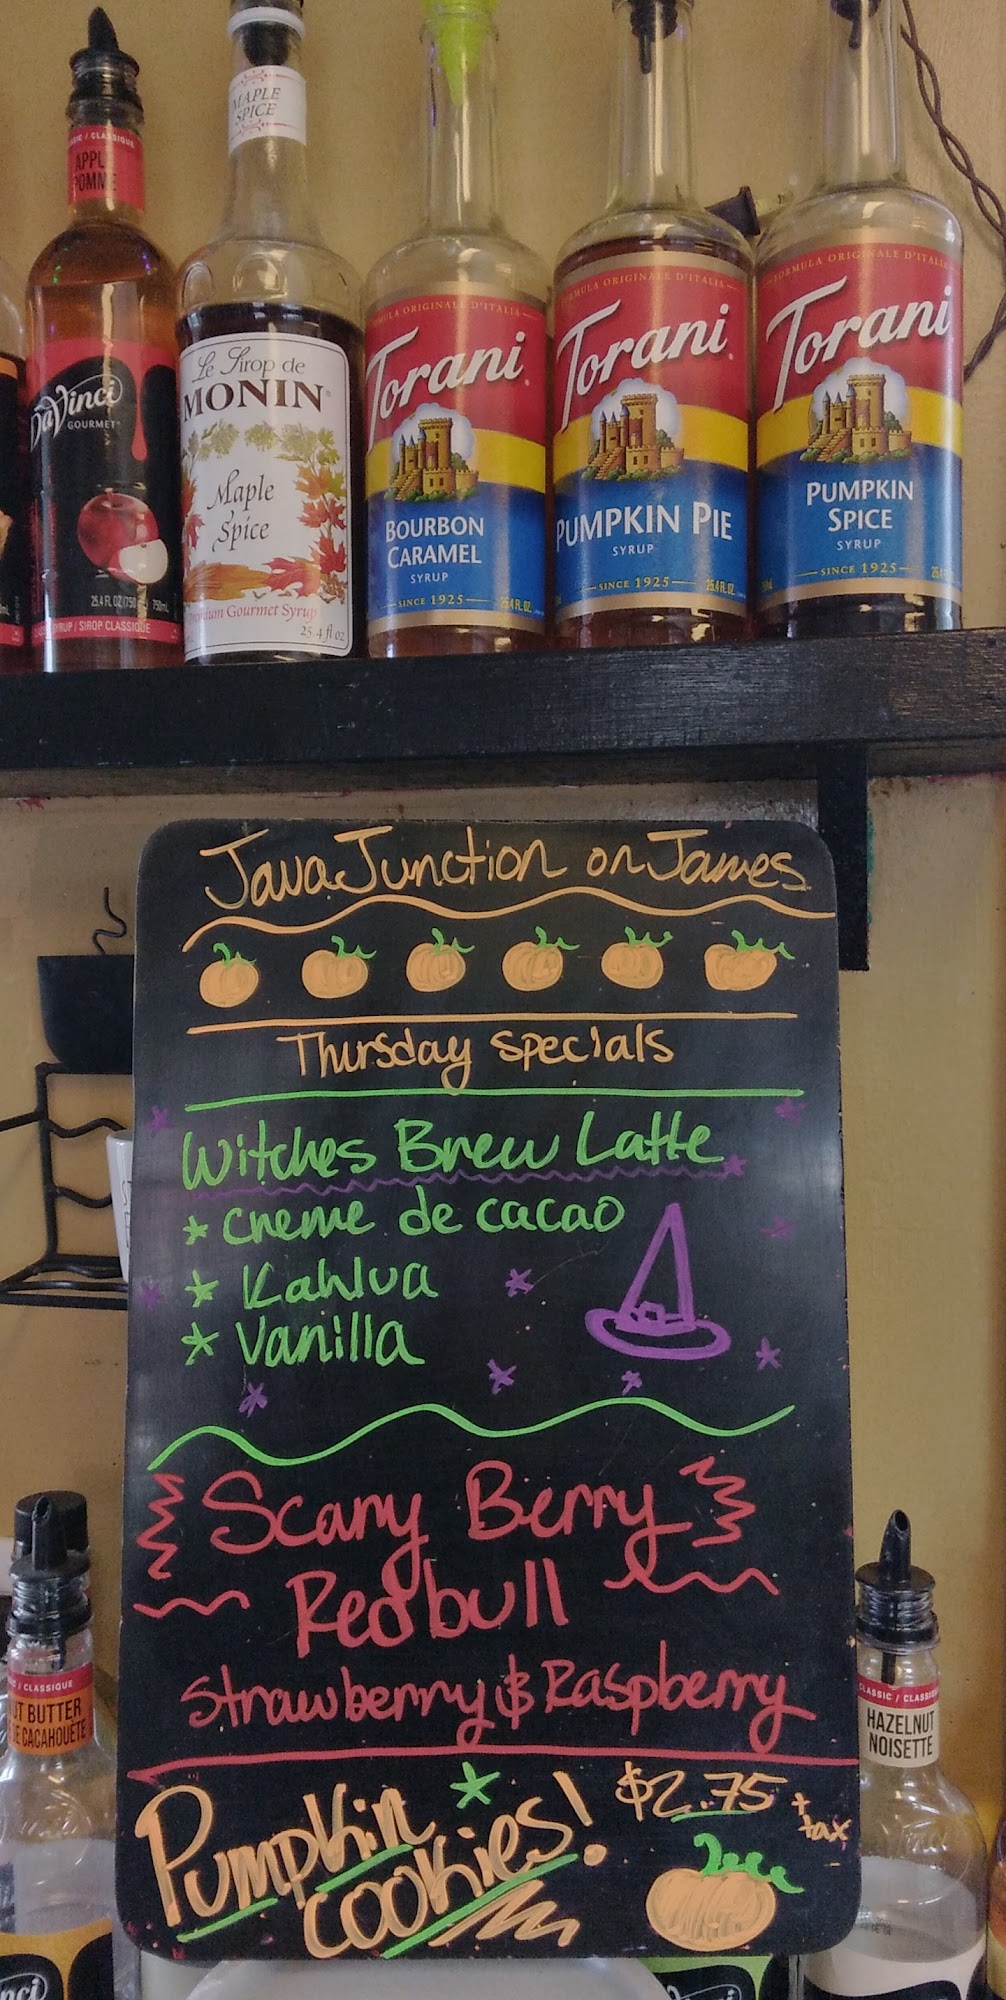 CLASSIQUE
POMME
DaVinci
GOURMET
25.4 FL OZ (750
750mL
SYRUP / SIROP CLASSIQUE
MAPLE
SPICE
Le Sirop de
MONIN
Maple
Spice
Premium Gourmet Syrup
25.4 fl oz
FORMULA ORIGINALE D'ITALIA
Torani
BOURBON
CARAMEL
SYRUP
SINCE 1925
25.4 FL OZ
FORMULA ORIGINALE D'ITALIA
Torani
PUMPKIN PIE
SYRUP
SINCE 1925
25.4 FL OZ
FORMULA ORIGINALE D'ITALIA
Torani
PUMPKIN
SPICE
SYRUP
SINCE 1925
Java Junction on James
Thursday specials
Witches Brew Latte
* creme de cacao
* Kahlua
* Vanilla
Scary Berry
Redbull
Strawberry & Raspberry
Pumpkin
cookies!
$2.75 + tax
CLASSIQUE
UT BUTTER
DE CACAHOUÈTE
CLASSIC / CLASSIQUE
HAZELNUT
NOISETTE